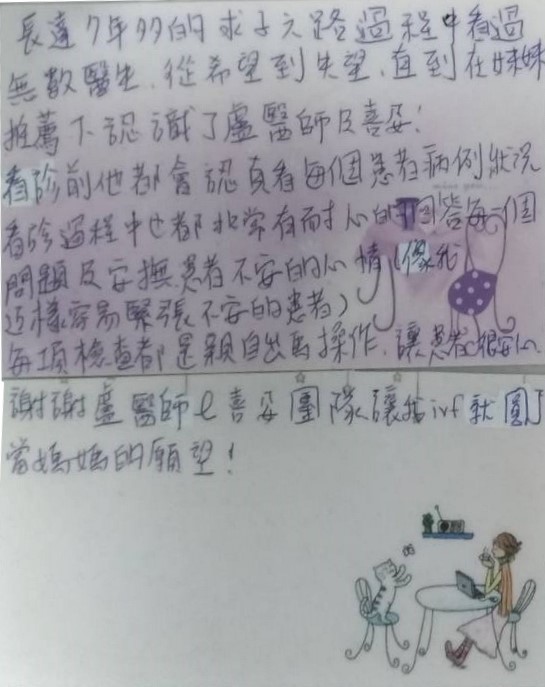 長達7年多的求子之路過程中看過
無數醫生,從希望到失望,直到在妹妹
推薦下認識了盧醫師及喜姿!
看診前他都會認真看每個患者病例狀況
看診過程中也都非常有耐心的回答每一個
問題及安撫患者不安的心情(像我
這樣容易緊張不安的患者)
每項檢查都是親自出馬操作,讓患者很安心
謝謝盧醫師&喜姿團隊讓我ivf就圓了
當媽媽的願望!